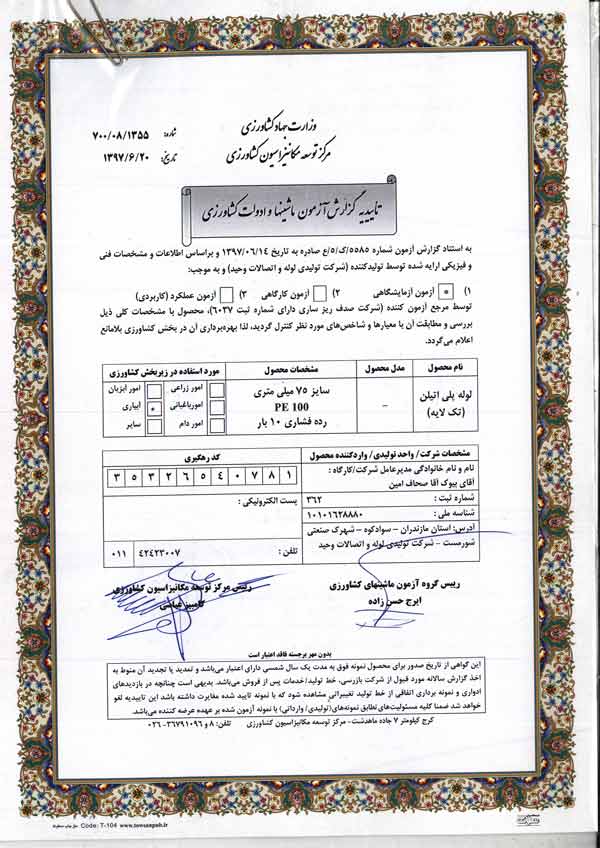 وزارت جهاد کشاورزی
مرکز توسعه مکانیزاسیون کشاورزی
شماره: ۷۰۰/۰۸/۱۳۵۵
تاریخ: ۱۳۹۷/۶/۲۰
تاییدیه گزارش آزمون ماشینها و ادوات کشاورزی
به استناد گزارش آزمون شماره ۵۵۸۵/ک/۵/ع صادره به تاریخ ۱۳۹۷/۰۶/۱۴ و براساس اطلاعات و مشخصات فنی
و فیزیکی ارایه شده توسط تولیدکننده (شرکت تولیدی لوله و اتصالات وحید) و به موجب:
۱) آزمون آزمایشگاهی * ۲) آزمون کارگاهی ۳) آزمون عملکرد (کاربردی)
توسط مرجع آزمون کننده (شرکت صدف ریز ساری دارای شماره ثبت ۶۰۳۷)، محصول با مشخصات کلی ذیل
بررسی و مطابقت آن با معیارها و شاخص‌های مورد نظر کنترل گردید، لذا بهره‌برداری آن در بخش کشاورزی بلامانع
اعلام می‌گردد.
نام محصول مدل محصول مشخصات محصول مورد استفاده در زیربخش کشاورزی
لوله پلی اتیلن
(تک لایه)
–
سایز ۷۵ میلی متری
PE 100
رده فشاری ۱۰ بار
امور زراعی امور آبزیان
امور باغبانی آبیاری *
امور دام سایر
مشخصات شرکت/ واحد تولیدی/ واردکننده محصول
نام و نام خانوادگی مدیرعامل شرکت/کارگاه:
آقای بیوک آقا صحاف امین
شماره ثبت: ۳۶۲
شناسه ملی: ۱۰۱۰۱۶۲۸۸۸۰
آدرس: استان مازندران – سوادکوه – شهرک صنعتی
شورمست – شرکت تولیدی لوله و اتصالات وحید
کد رهگیری
۳ ۵ ۳ ۲ ۶ ۵ ۴ ۰ ۷ ۸ ۱
پست الکترونیکی:
تلفن: ۴۲۴۲۳۰۰۷ ۰۱۱
رییس گروه آزمون ماشینهای کشاورزی
ایرج حسن زاده
رییس مرکز توسعه مکانیزاسیون کشاورزی
کامبیز عباسی
بدون مهر برجسته فاقد اعتبار است
این گواهی از تاریخ صدور برای محصول نمونه فوق به مدت یک سال شمسی دارای اعتبار می‌باشد و تمدید یا تجدید آن منوط به
اخذ گزارش سالانه مورد قبول از شرکت بازرسی، خط تولید/خدمات پس از فروش می‌باشد. بدیهی است چنانچه در بازدیدهای
ادواری و نمونه برداری اتفاقی از خط تولید تغییراتی مشاهده شود که با نمونه تایید شده مغایرت داشته باشد این تاییدیه لغو
خواهد شد ضمنا کلیه مسئولیت‌های تطابق نمونه‌های (تولیدی/ وارداتی) با نمونه آزمون شده بر عهده عرضه کننده می‌باشد.
کرج کیلومتر ۷ جاده ماهدشت - مرکز توسعه مکانیزاسیون کشاورزی تلفن: ۸ و ۳۶۷۹۱۰۹۶-۰۲۶
Code: T-104 www.towsaepaih.ir